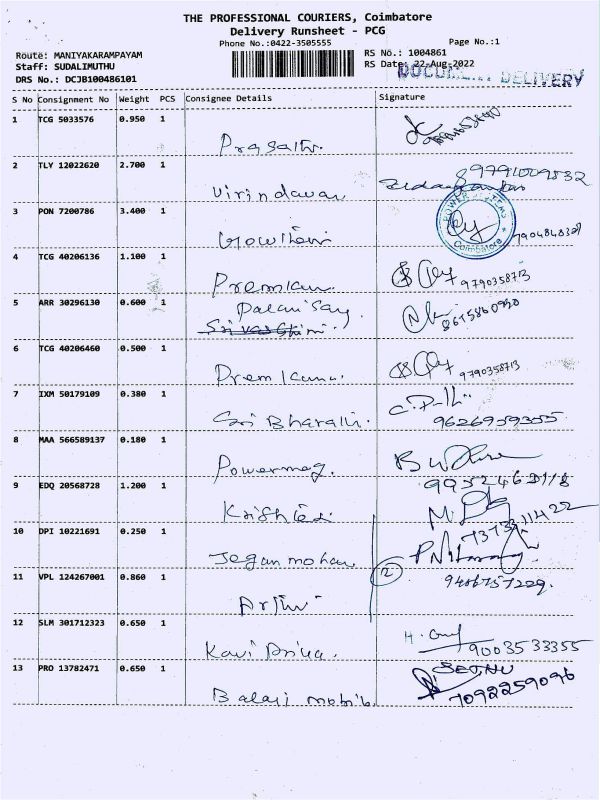 THE PROFESSIONAL COURIERS, Coimbatore
Delivery Runsheet - PCG
Phone No.:0422-3505555
Page No.:1
Route: MANIYAKARAMPAYAM
RS No.: 1004861
Staff: SUDALIMUTHU
RS Date: 22-Aug-2022
DOCUMENT DELIVERY
DRS No.: DCJB100486101
S No Consignment No Weight PCS Consignee Details Signature
1 TCG 5033576 0.950 1
Prasath.
2 TLY 12022620 2.700 1 9791009832
Virindavan
3 PON 7200786 3.400 1
POWER
Coimbatore
Gowtham 7904848308
4 TCG 40206136 1.100 1
Premkum 9790358713
5 ARR 30296130 0.600 1 Palanisamy
8675860950
6 TCG 40206460 0.500 1
Premkumar 9790358713
7 IXM 50179109 0.380 1
Sri Bharathi. 9626959355
8 MAA 566589137 0.180 1
Powermag.
9 EDQ 20568728 1.200 1 9952462118
10 DPI 10221691 0.250 1 7373311422
Jegan mohan
11 VPL 124267001 0.860 1 2 9486757229.
12 SLM 301712323 0.650 1
Kavi Priya. 9003533355
13 PRO 13782471 0.650 1
Balaji mobile 7092259096